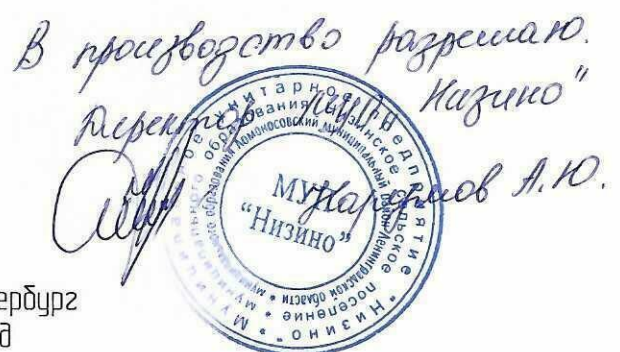 В производство разрешаю.
Директор МУП "Низино"
А.Ю.
Муниципальное унитарное предприятие "Низино"
муниципального образования Низинское сельское поселение
муниципального образования Ломоносовский муниципальный район Ленинградской области
МУП
"Низино"
ербург
д